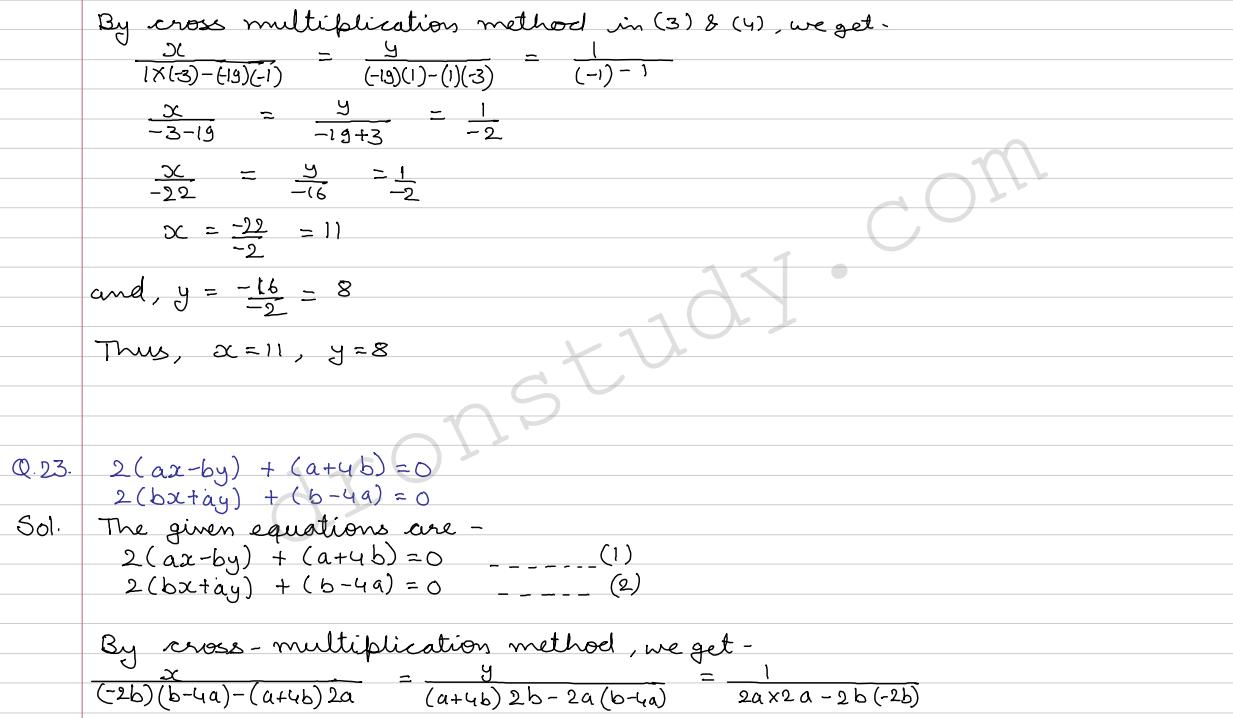 By cross multiplication method in (3) & (4), we get -
x/(1×(-3)-(-19)(-1)) = y/((-19)(1)-(1)(-3)) = 1/((-1)-1)
x/(-3-19) = y/(-19+3) = 1/-2
x/-22 = y/-16 = 1/-2
x = -22/-2 = 11
and, y = -16/-2 = 8
Thus, x=11, y=8
Q.23. 2(ax-by) + (a+4b)=0
2(bx+ay) + (b-4a)=0
Sol. The given equations are -
2(ax-by) + (a+4b)=0 -------(1)
2(bx+ay) + (b-4a)=0 ----- (2)
By cross-multiplication method, we get -
x/((-2b)(b-4a)-(a+4b)2a) = y/((a+4b)2b-2a(b-4a)) = 1/(2a×2a-2b(-2b))
dronstudy.com